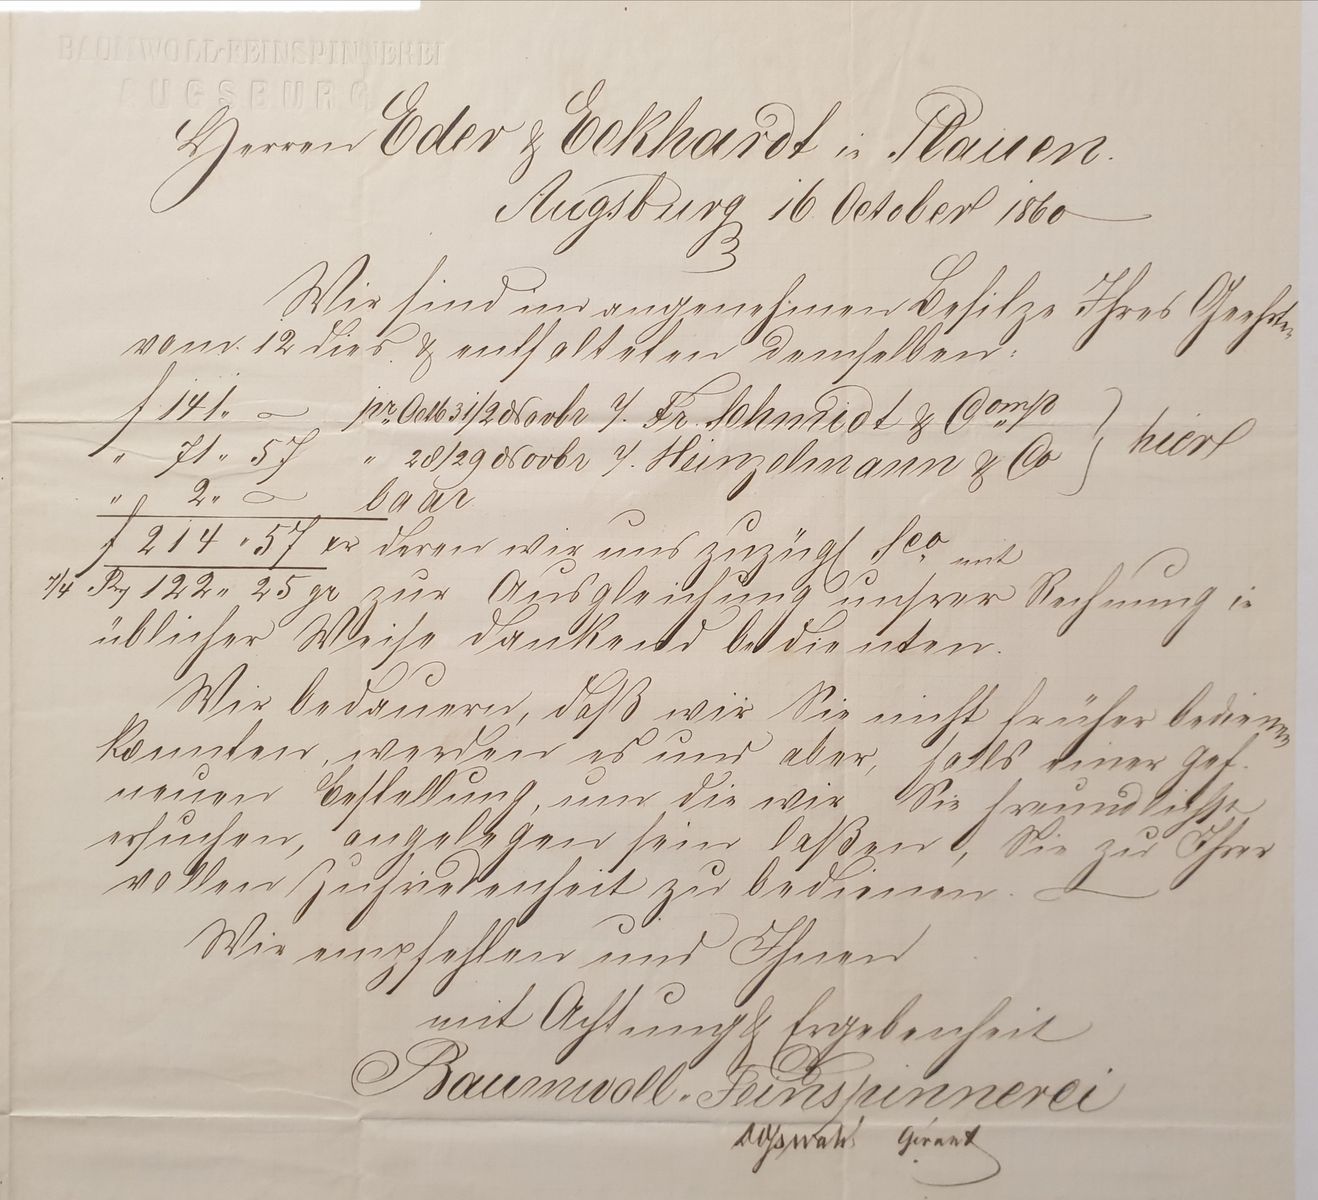 BAUMWOLL-FEINSPINNEREI
AUGSBURG
Herren Eder & Eckhardt in Plauen.
Augsburg 16 October 1860
Wir sind im angenehmen Besitze Ihres Geehrten
vom 12 dies. & enthalten demselben:
f 141 " —
pr. Octb 31/2 Novbr
Fr. Schmidt & Comp
" 71 " 57 " 28/29 Novbr
Heinzelmann & Co
hier
" 2 " — baar
f 214 " 57 xr deren wir uns zuzügl. Sco mit
122 " 25 gr zur Ausgleichung unsrer Rechnung in
üblicher Weise dankend bedienten.
Wir bedauern, daß wir Sie nicht früher bedienen
konnten, werden es uns aber, falls einer gef.
neuen Bestellung, um die wir Sie freundlichst
ersuchen, angelegen sein laßen, Sie zu Ihrer
vollen Zufriedenheit zu bedienen. —
Wir empfehlen uns Ihnen
mit Achtung & Ergebenheit
Baumwoll-Feinspinnerei
Gérant